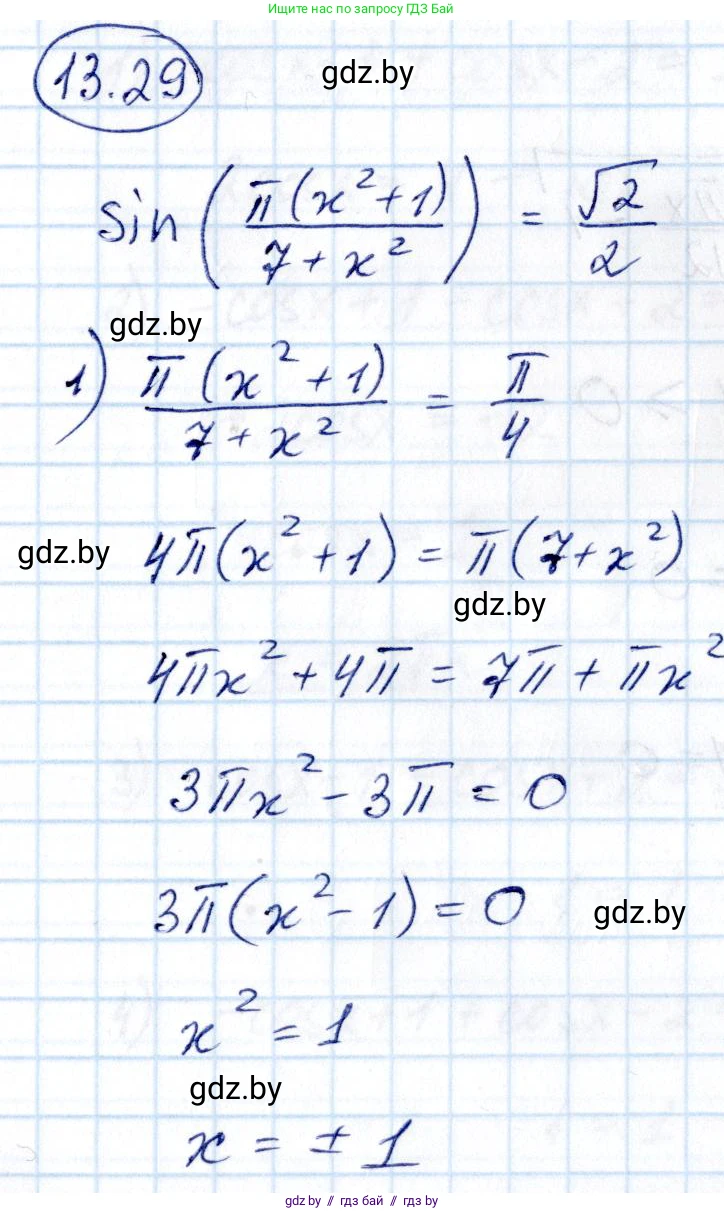 Ищите нас по запросу ГДЗ Бай
13.29
gdz.by
sin(π(x²+1)/(7+x²)) = √2/2
gdz.by
1) π(x²+1)/(7+x²) = π/4
gdz.by
4π(x²+1) = π(7+x²)
gdz.by
4πx²+4π = 7π+πx²
3πx²-3π = 0
3π(x²-1) = 0
gdz.by
x² = 1
gdz.by
x = ±1
gdz.by // гдз бай // гдз by